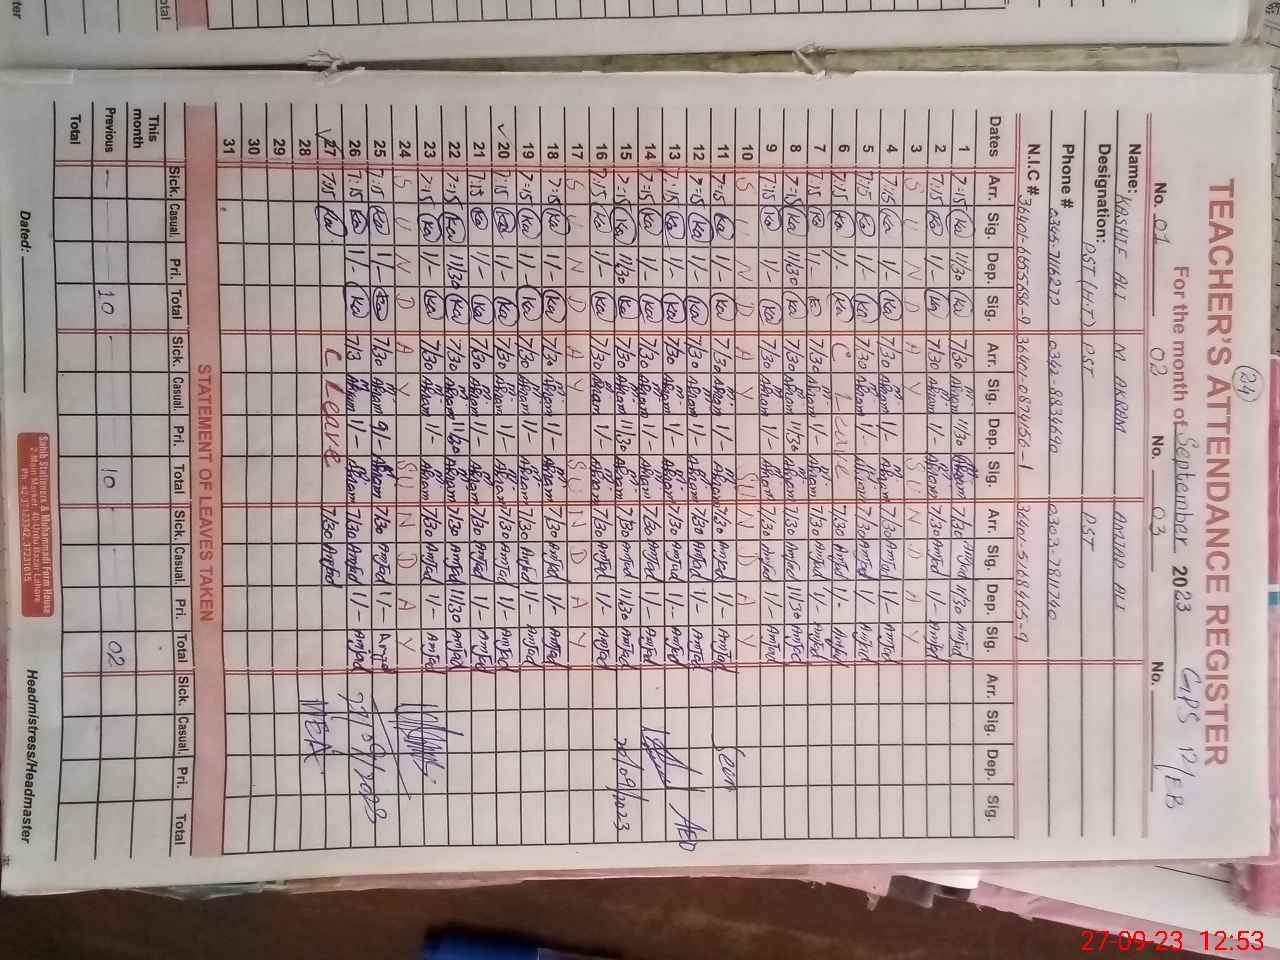 (24)
TEACHER'S ATTENDANCE REGISTER
For the month of September 2023 GPS 12/EB
No. 01 02 No. 03 No.
Name: KASHIF ALI M AKRAM AMJAD ALI
Designation: PST (H.T) PST PST
Phone # 0342-8834690
N.I.C #
Dates Arr. Sig. Dep. Sig. Arr. Sig. Dep. Sig. Arr. Sig. Dep. Sig. Arr. Sig. Dep. Sig.
1 7:15 Ka 11/30 Ka 7/30 Akram 11/30 Akram 7/30 Amjad 11/30 Amjad
2 7:15 Ka 1/- Ka 7/30 Akram 1/- Akram 7/30 Amjad 1/- Amjad
3 S U N D A Y S U N D A Y
4 7:15 Ka 1/- Ka 7/30 Akram 1/- Akram 7/30 Amjad 1/- Amjad
5 7:15 Ka 1/- Ka 7/30 Akram 1/- Akram 7/30 Amjad 1/- Amjad
6 7:15 Ka 1/- Ka C Leave 7/30 Amjad 1/- Amjad
7 7:15 Ka 1/- Ka 7/30 Akram 1/- Akram 7/30 Amjad 1/- Amjad
8 7:15 Ka 11/30 Ka 7/30 Akram 11/30 Akram 7/30 Amjad 11/30 Amjad
9 7:15 Ka 1/- Ka 7/30 Akram 1/- Akram 7/30 Amjad 1/- Amjad
10 S U N D A Y SUNDAY
11 7:15 Ka 1/- Ka 7/30 Akram 1/- Akram 7/30 Amjad 1/- Amjad
12 7:15 Ka 1/- Ka 7/30 Akram 1/- Akram 7/30 Amjad 1/- Amjad
13 7:15 Ka 1/- Ka 7/30 Akram 1/- Akram 7/30 Amjad 1/- Amjad AEO
14 7:15 Ka 1/- Ka 7/30 Akram 1/- Akram 7/30 Amjad 1/- Amjad
15 7:15 Ka 11/30 Ka 7/30 Akram 11/30 Akram 7/30 Amjad 11/30 Amjad 20/09/2023
16 7:15 Ka 1/- Ka 7/30 Akram 1/- Akram 7/30 Amjad 1/- Amjad
17 S U N D A Y SUNDAY
18 7:15 Ka 1/- Ka 7/30 Akram 1/- Akram 7/30 Amjad 1/- Amjad
19 7:15 Ka 1/- Ka 7/30 Akram 1/- Akram 7/30 Amjad 1/- Amjad
20 7:15 Ka 1/- Ka 7/30 Akram 1/- Akram 7/30 Amjad 1/- Amjad
21 7:15 Ka 1/- Ka 7/30 Akram 1/- Akram 7/30 Amjad 1/- Amjad
22 7:15 Ka 11/30 Ka 7/30 Akram 11/30 Akram 7/30 Amjad 11/30 Amjad
23 7:15 Ka 1/- Ka 7/30 Akram 1/- Akram 7/30 Amjad 1/- Amjad
24 S U N D A Y SUNDAY
25 7:15 Ka 1/- Ka 7/30 Akram Akram 7/30 Amjad 1/-
26 7:15 Ka 1/- Ka Akram 1/- Akram 7/30 Amjad 1/- Amjad 27/09/2023
27 7:15 Ka C Leave 7/30 Amjad MEA
28
29
30
31
STATEMENT OF LEAVES TAKEN
Sick. Casual. Pri. Total Sick. Casual. Pri. Total Sick. Casual. Pri. Total Sick. Casual. Pri. Total
This month
Previous 10 10 02
Total
Dated: Headmistress/Headmaster
Sahib Stationers & Muhammadi Form House
2-Main Market, 40-Urdu Bazar Lahore
27-09-23 12:53